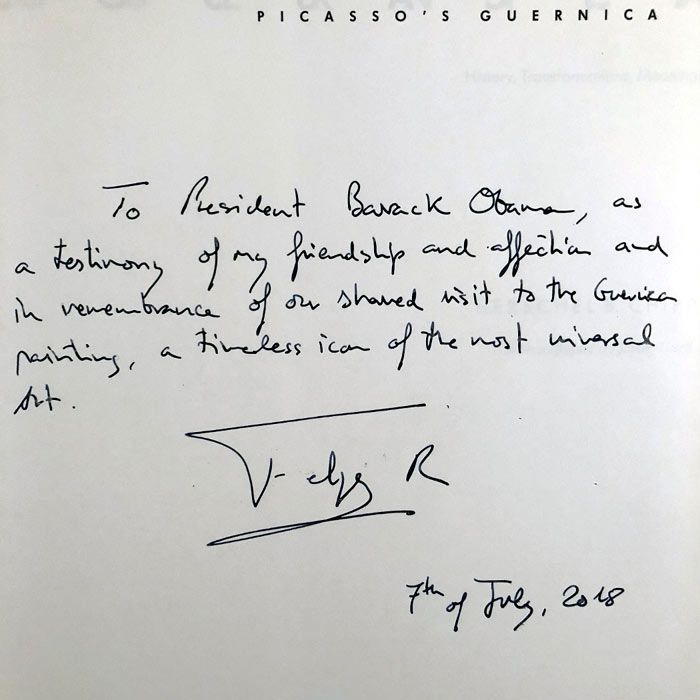 PICASSO'S GUERNICA
To President Barack Obama, as
a testimony of my friendship and affection and
in remembrance of our shared visit to the Guernica
painting, a timeless icon of the most universal
Art.
Felipe R
7th of July, 2018